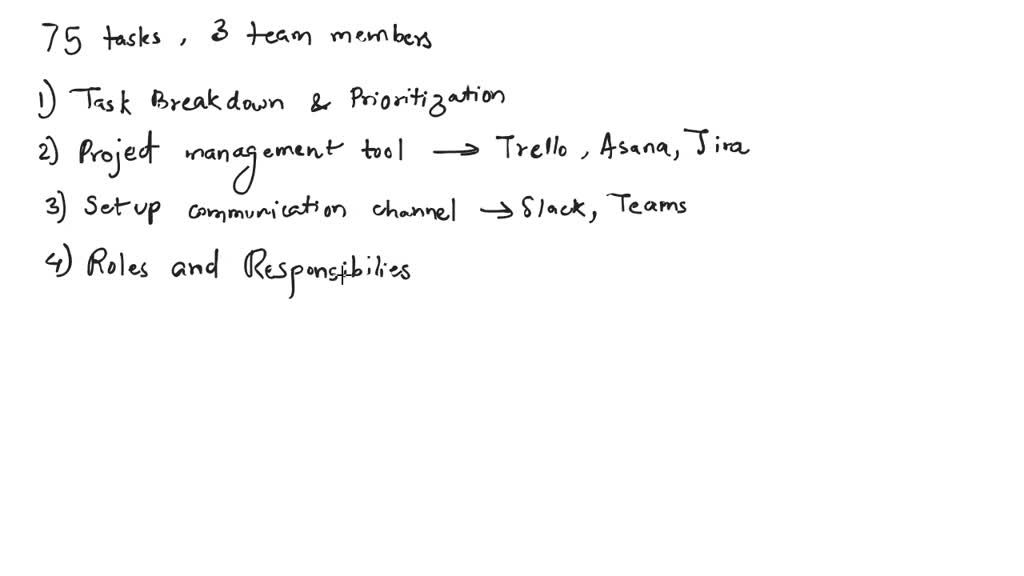 75 tasks, 3 team members
1) Task Breakdown & Prioritization
2) Project management tool → Trello, Asana, Jira
3) Set up communication channel → Slack, Teams
4) Roles and Responsibilies